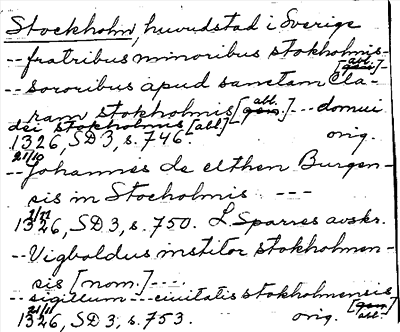 Stockholm, huvudstad i Sverige
-- fratribus minoribus stokholmis-
[abl.]-
-- sororibus apud sanctam Cla-
ram stokholmis [abl.] -- domui
dei stokholmis [abl.]
1326, SD 3, s. 746. orig.
21/10
-- Johannes de elthen Burgen-
sis in Stocholmis ---
1326, SD 3, s. 750. L Sparres avskr.
-- Vigboldus institor stokholmen-
sis [nom.] ---
-- sigillum --- ciuitatis stokholmensis
1326, SD 3, s. 753. orig. abl.